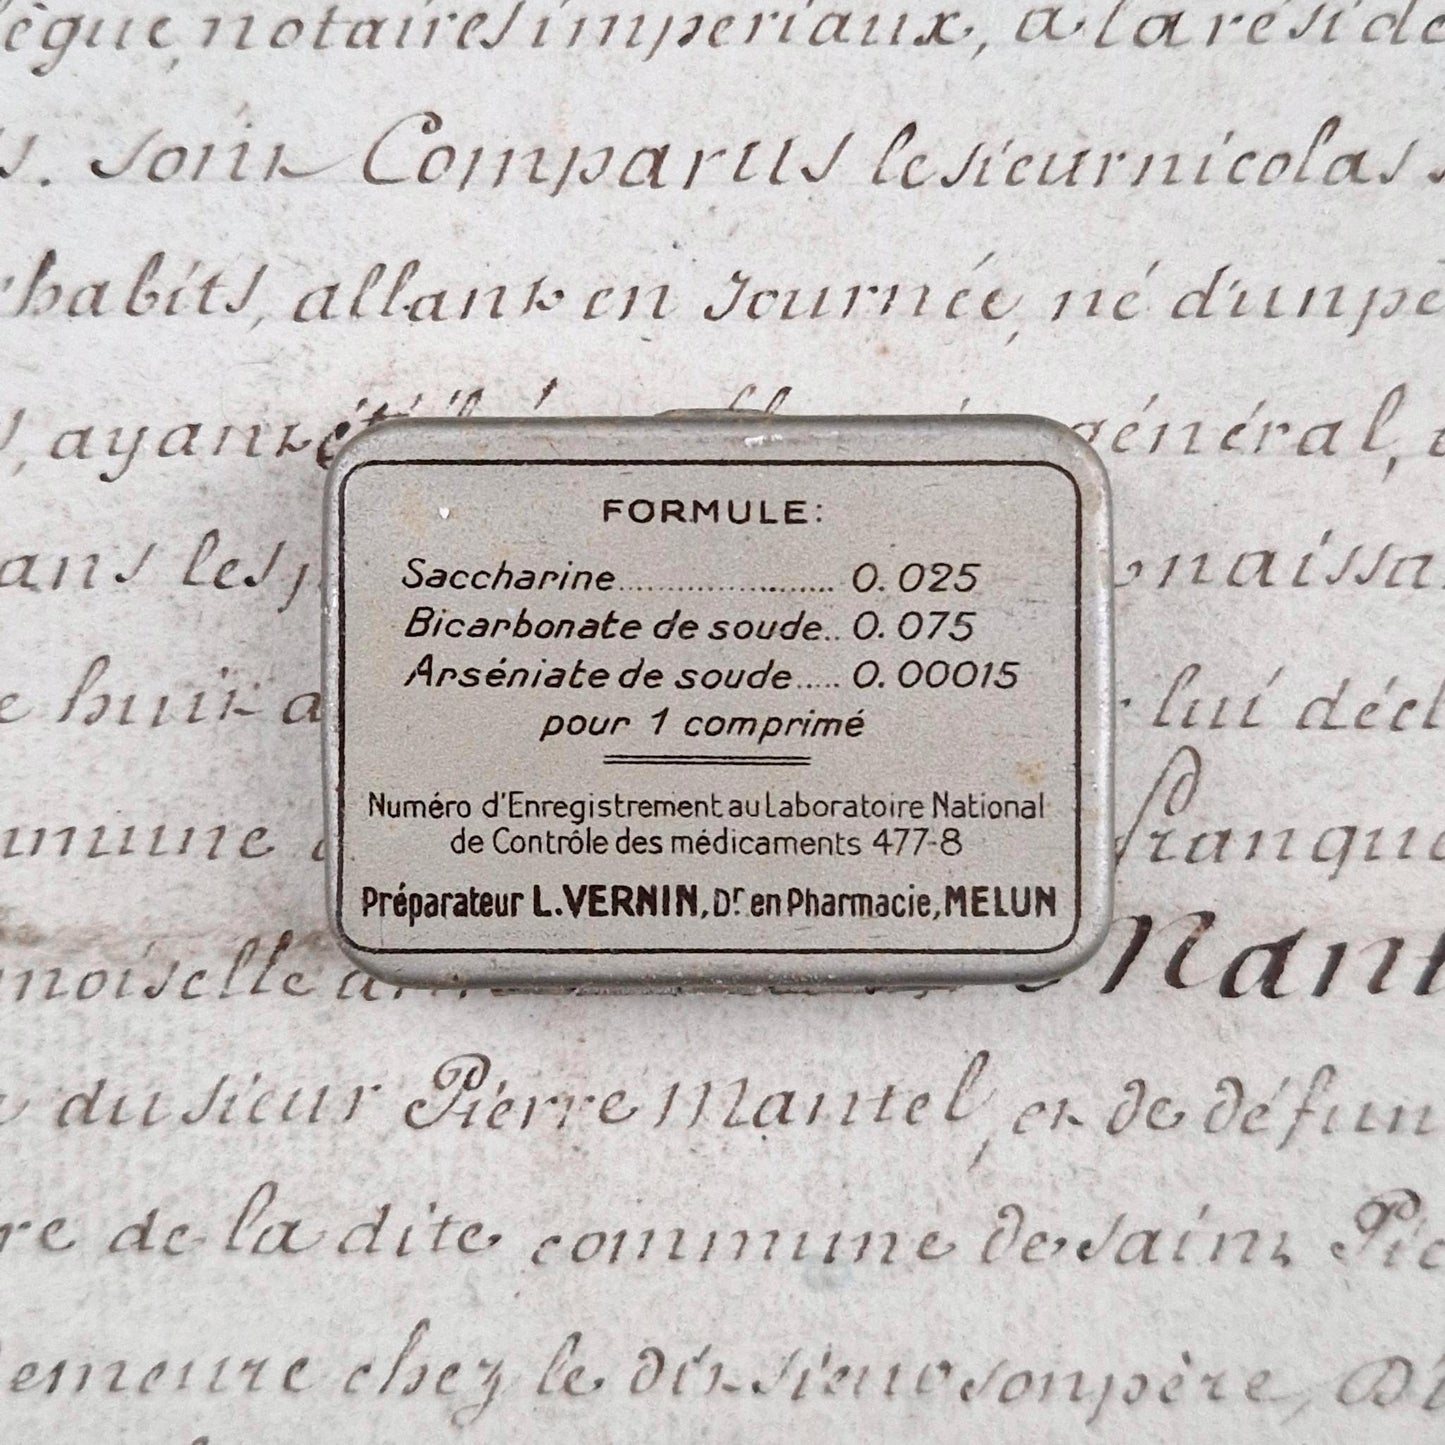 notaires impériaux, a la réside
. sont Comparus le sieur nicolas
habits, allant en Journée, né d'un pè
, ayant été général,
ans les naissa
huit a lui décl
mmune franque
moiselle Mant
du sieur Pierre Mantel, et de défun
re de la dite commune de saint Pie
emeure chez le dit sieur son père,
FORMULE:
Saccharine..................... 0.025
Bicarbonate de soude.. 0.075
Arséniate de soude..... 0.00015
pour 1 comprimé
Numéro d'Enregistrement au Laboratoire National
de Contrôle des médicaments 477-8
Préparateur L. VERNIN, Dr en Pharmacie, MELUN